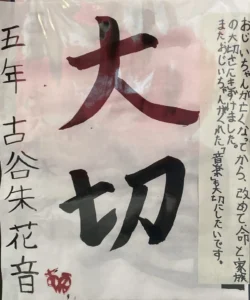 おじいちゃんがなくなってから、改めて命と家族
の大切さにきずけました。
またおじいちゃんがくれた「音楽」も大切にしたいです。
大切
五年 古谷朱花音